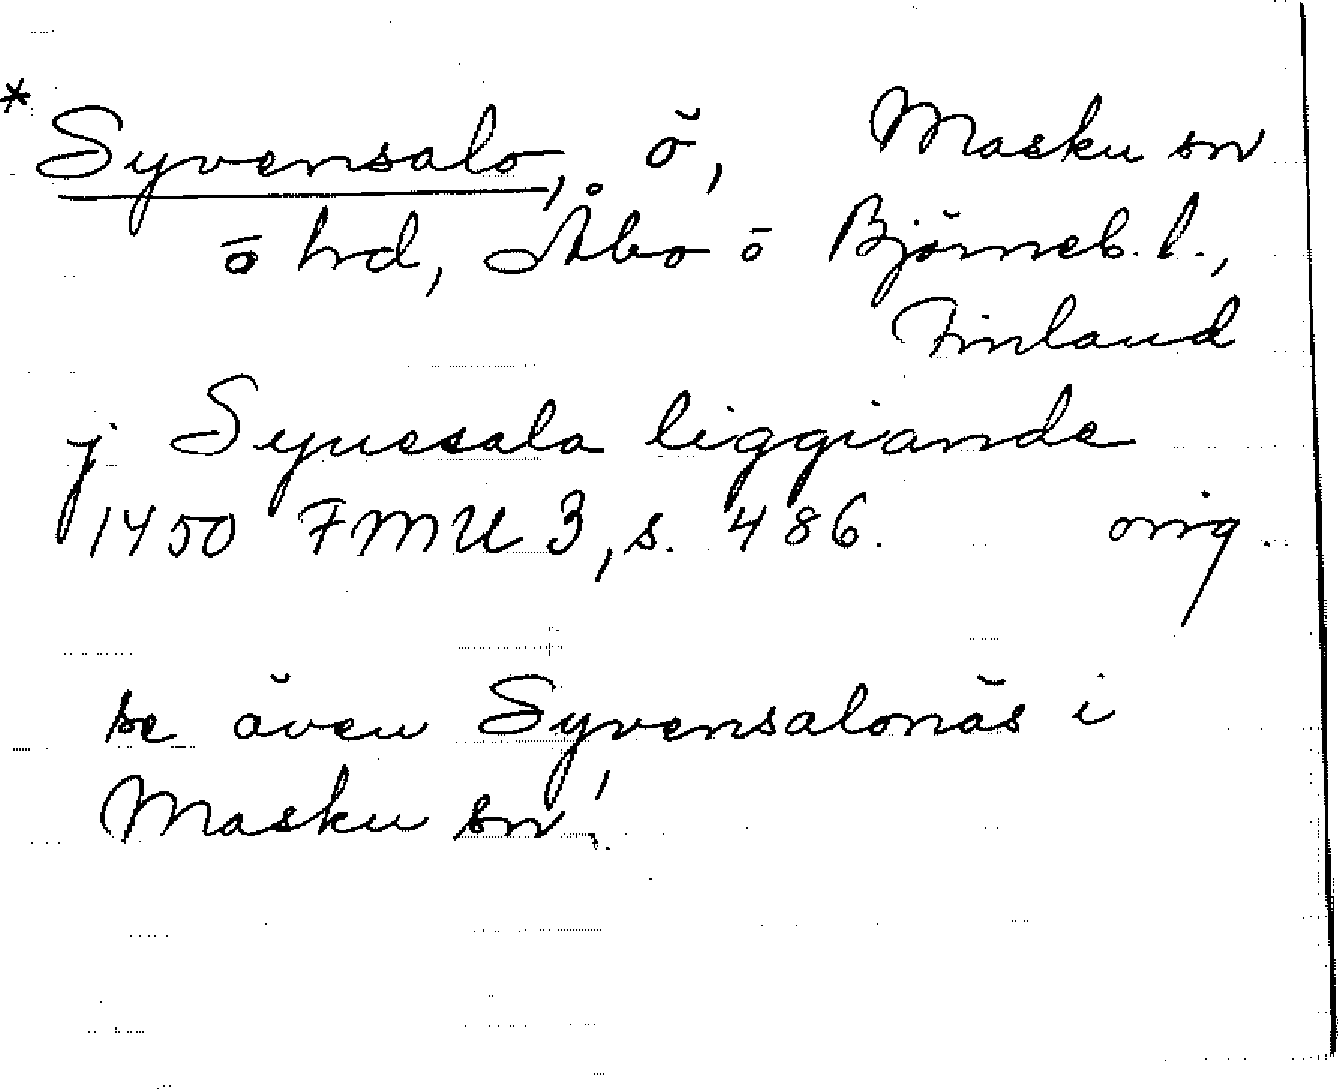 * Syvensalo, ö, Masku sn
o hd, Åbo o Björneb. l.,
Finland
j Syuesala liggiande
1450 FMU 3, s. 486. orig.
se även Syvensalonäs i
Masku sn!